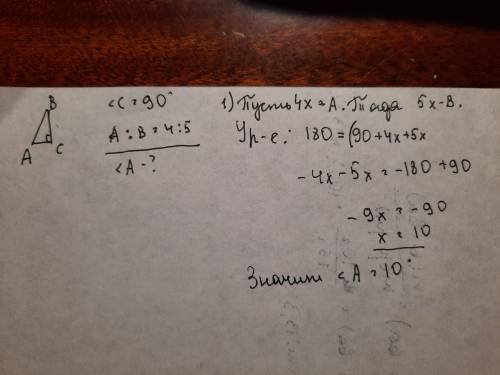 B
A
C
<C = 90°
A : B = 4 : 5
<A - ?
1) Пусть 4x = A. Тогда 5x - B.
Ур-е: 180 = (90 + 4x + 5x
- 4x - 5x = - 180 + 90
- 9x = - 90
x = 10
Значит <A = 10°